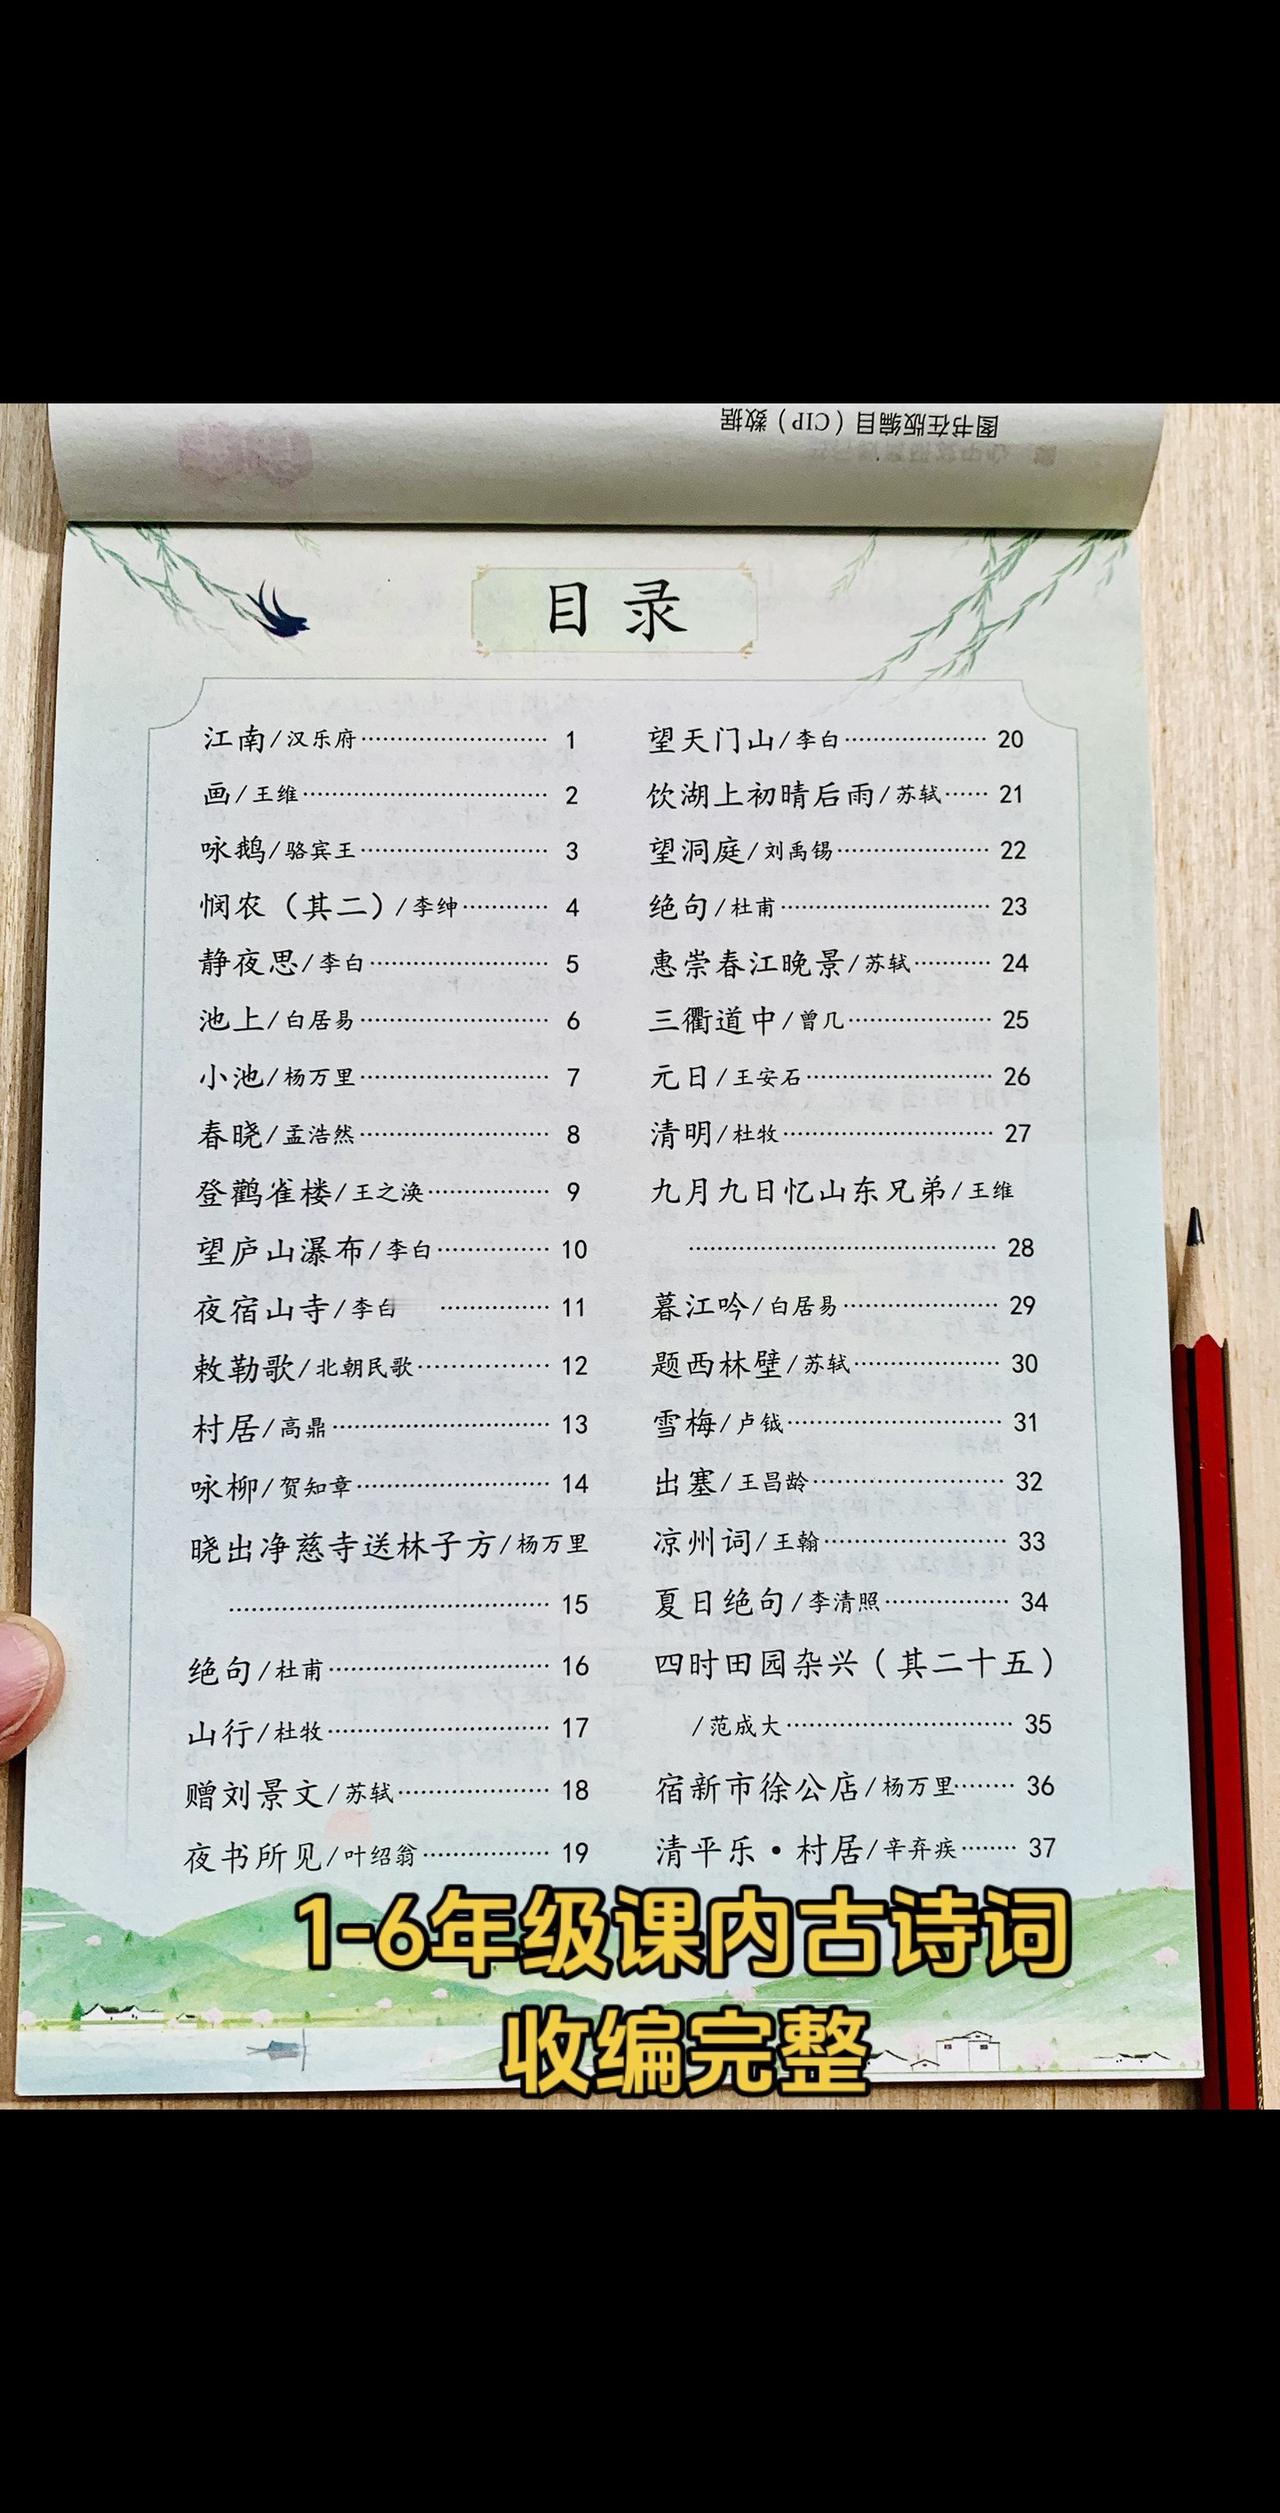 图书在版编目（CIP）数据
目录
江南/汉乐府 1
画/王维 2
咏鹅/骆宾王 3
悯农（其二）/李绅 4
静夜思/李白 5
池上/白居易 6
小池/杨万里 7
春晓/孟浩然 8
登鹳雀楼/王之涣 9
望庐山瀑布/李白 10
夜宿山寺/李白 11
敕勒歌/北朝民歌 12
村居/高鼎 13
咏柳/贺知章 14
晓出净慈寺送林子方/杨万里
15
绝句/杜甫 16
山行/杜牧 17
赠刘景文/苏轼 18
夜书所见/叶绍翁 19
望天门山/李白 20
饮湖上初晴后雨/苏轼 21
望洞庭/刘禹锡 22
绝句/杜甫 23
惠崇春江晚景/苏轼 24
三衢道中/曾几 25
元日/王安石 26
清明/杜牧 27
九月九日忆山东兄弟/王维
28
暮江吟/白居易 29
题西林壁/苏轼 30
雪梅/卢钺 31
出塞/王昌龄 32
凉州词/王翰 33
夏日绝句/李清照 34
四时田园杂兴（其二十五）
/范成大 35
宿新市徐公店/杨万里 36
清平乐·村居/辛弃疾 37
1-6年级课内古诗词
收编完整